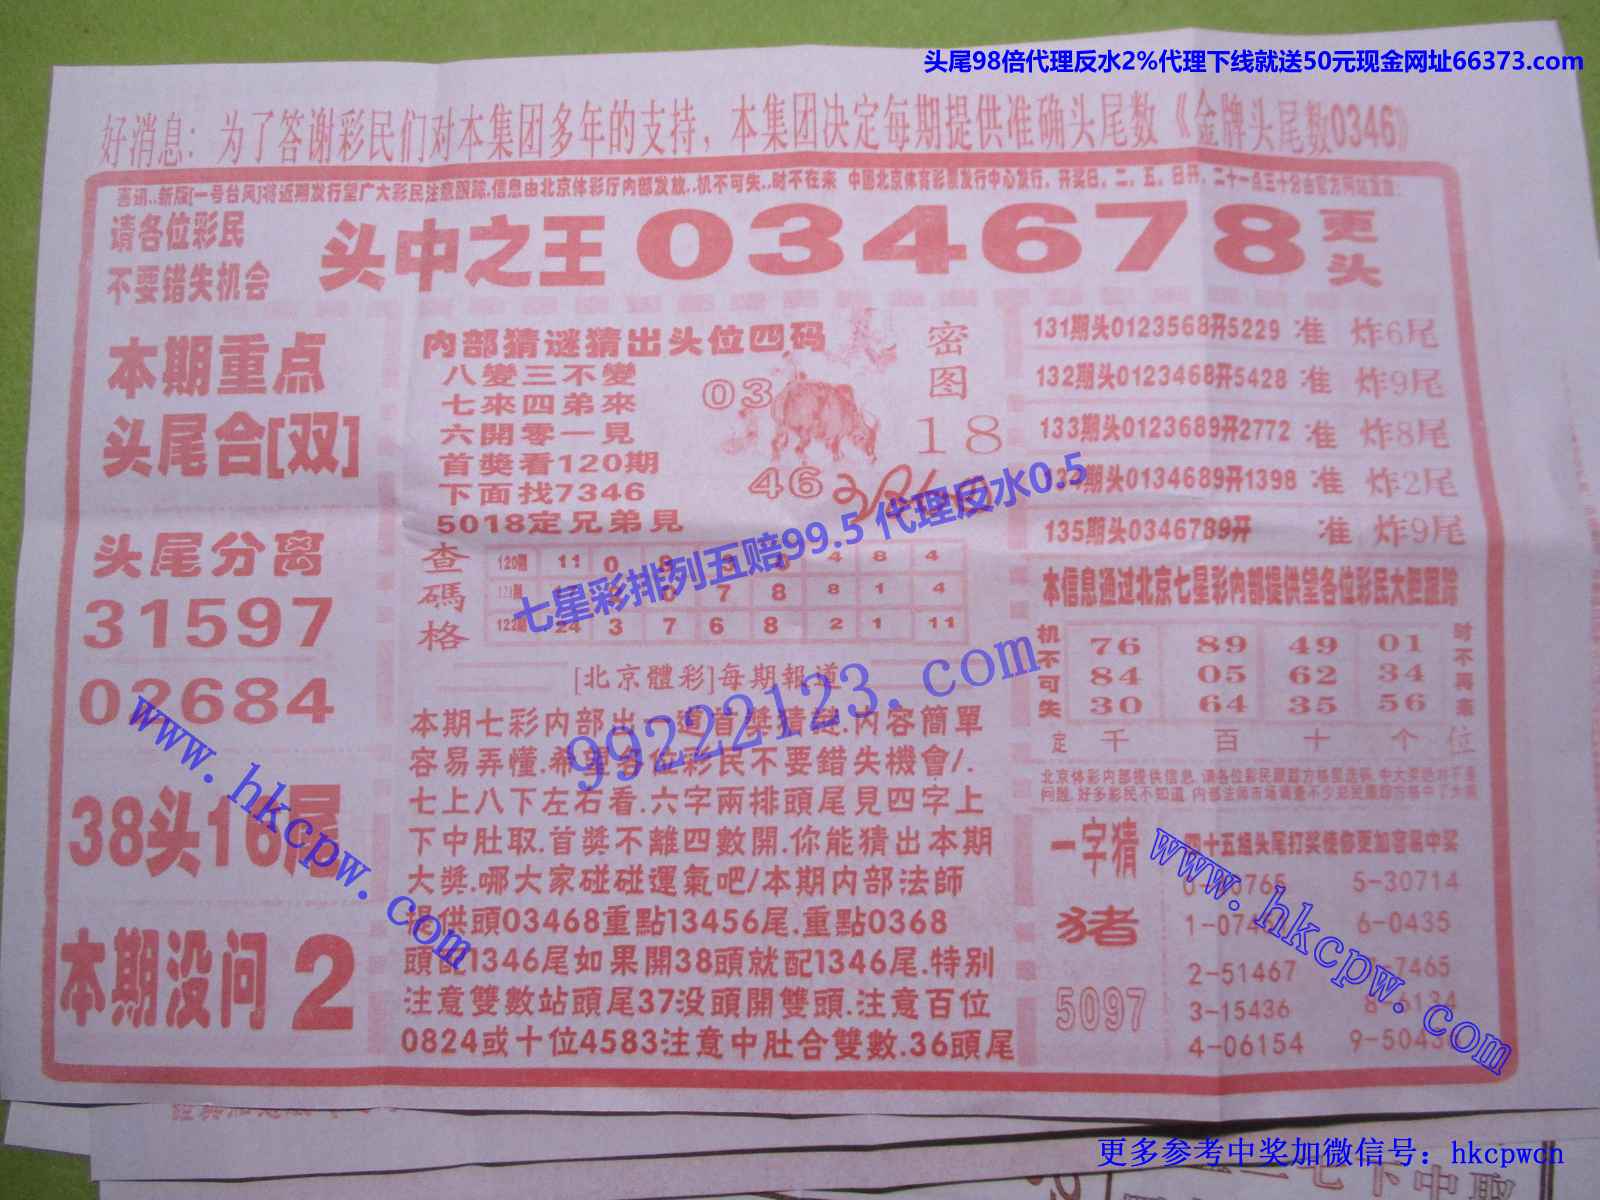 头尾98倍代理反水2%代理下线就送50元现金网址66373.com
好消息：为了答谢彩民们对本集团多年的支持，本集团决定每期提供准确头尾数《金牌头尾数0346》
喜讯..新版[一号台风]将近期发行望广大彩民注意跟踪.信息由北京体彩厅内部发放..机不可失..时不在来 中国北京体育彩票发行中心发行，开奖日，二、五、日开，二十一点三十分由官方网站直查.
请各位彩民
不要错失机会
头中之王 034678 更头
本期重点
头尾合[双]
头尾分离
31597
02684
38头16尾
本期没问 2
内部猜谜猜出头位四码
八變三不變
七來四弟來
六開零一見
首獎看120期
下面找7346
5018定兄弟見
03
46
密图
18
查碼格
120期 11 0 4 8 4
7 8 8 1 4
122期 24 3 7 6 8 2 1 11
七星彩排列五赔99.5 代理反水0.5
99222123.com
[北京體彩]每期報道
本期七彩内部出一道首獎猜謎.内容簡單
容易弄懂.希望各位彩民不要錯失機會/.
七上八下左右看.六字兩排頭尾見四字上
下中肚取.首獎不離四數開.你能猜出本期
大獎.哪大家碰碰運氣吧/本期内部法師
提供頭03468重點13456尾.重點0368
頭配1346尾如果開38頭就配1346尾.特别
注意雙數站頭尾37没頭開雙頭.注意百位
0824或十位4583注意中肚合雙數.36頭尾
131期头0123568开5229 准 炸6尾
132期头0123468开5428 准 炸9尾
133期头0123689开2772 准 炸8尾
134期头0134689开1398 准 炸2尾
135期头0346789开 准 炸9尾
本信息通过北京七星彩内部提供望各位彩民大胆跟踪
机不可失
76 89 49 01
84 05 62 34
30 64 35 56
时不再来
定 千 百 十 个 位
一字猜
猪
5097
四十五组头尾打奖使你更加容易中奖
5-30714
6-0435
2-51467
7465
3-15436
4-06154
www.hkcpw.com
www.hkcpw.com
更多参考中奖加微信号：hkcpwcn